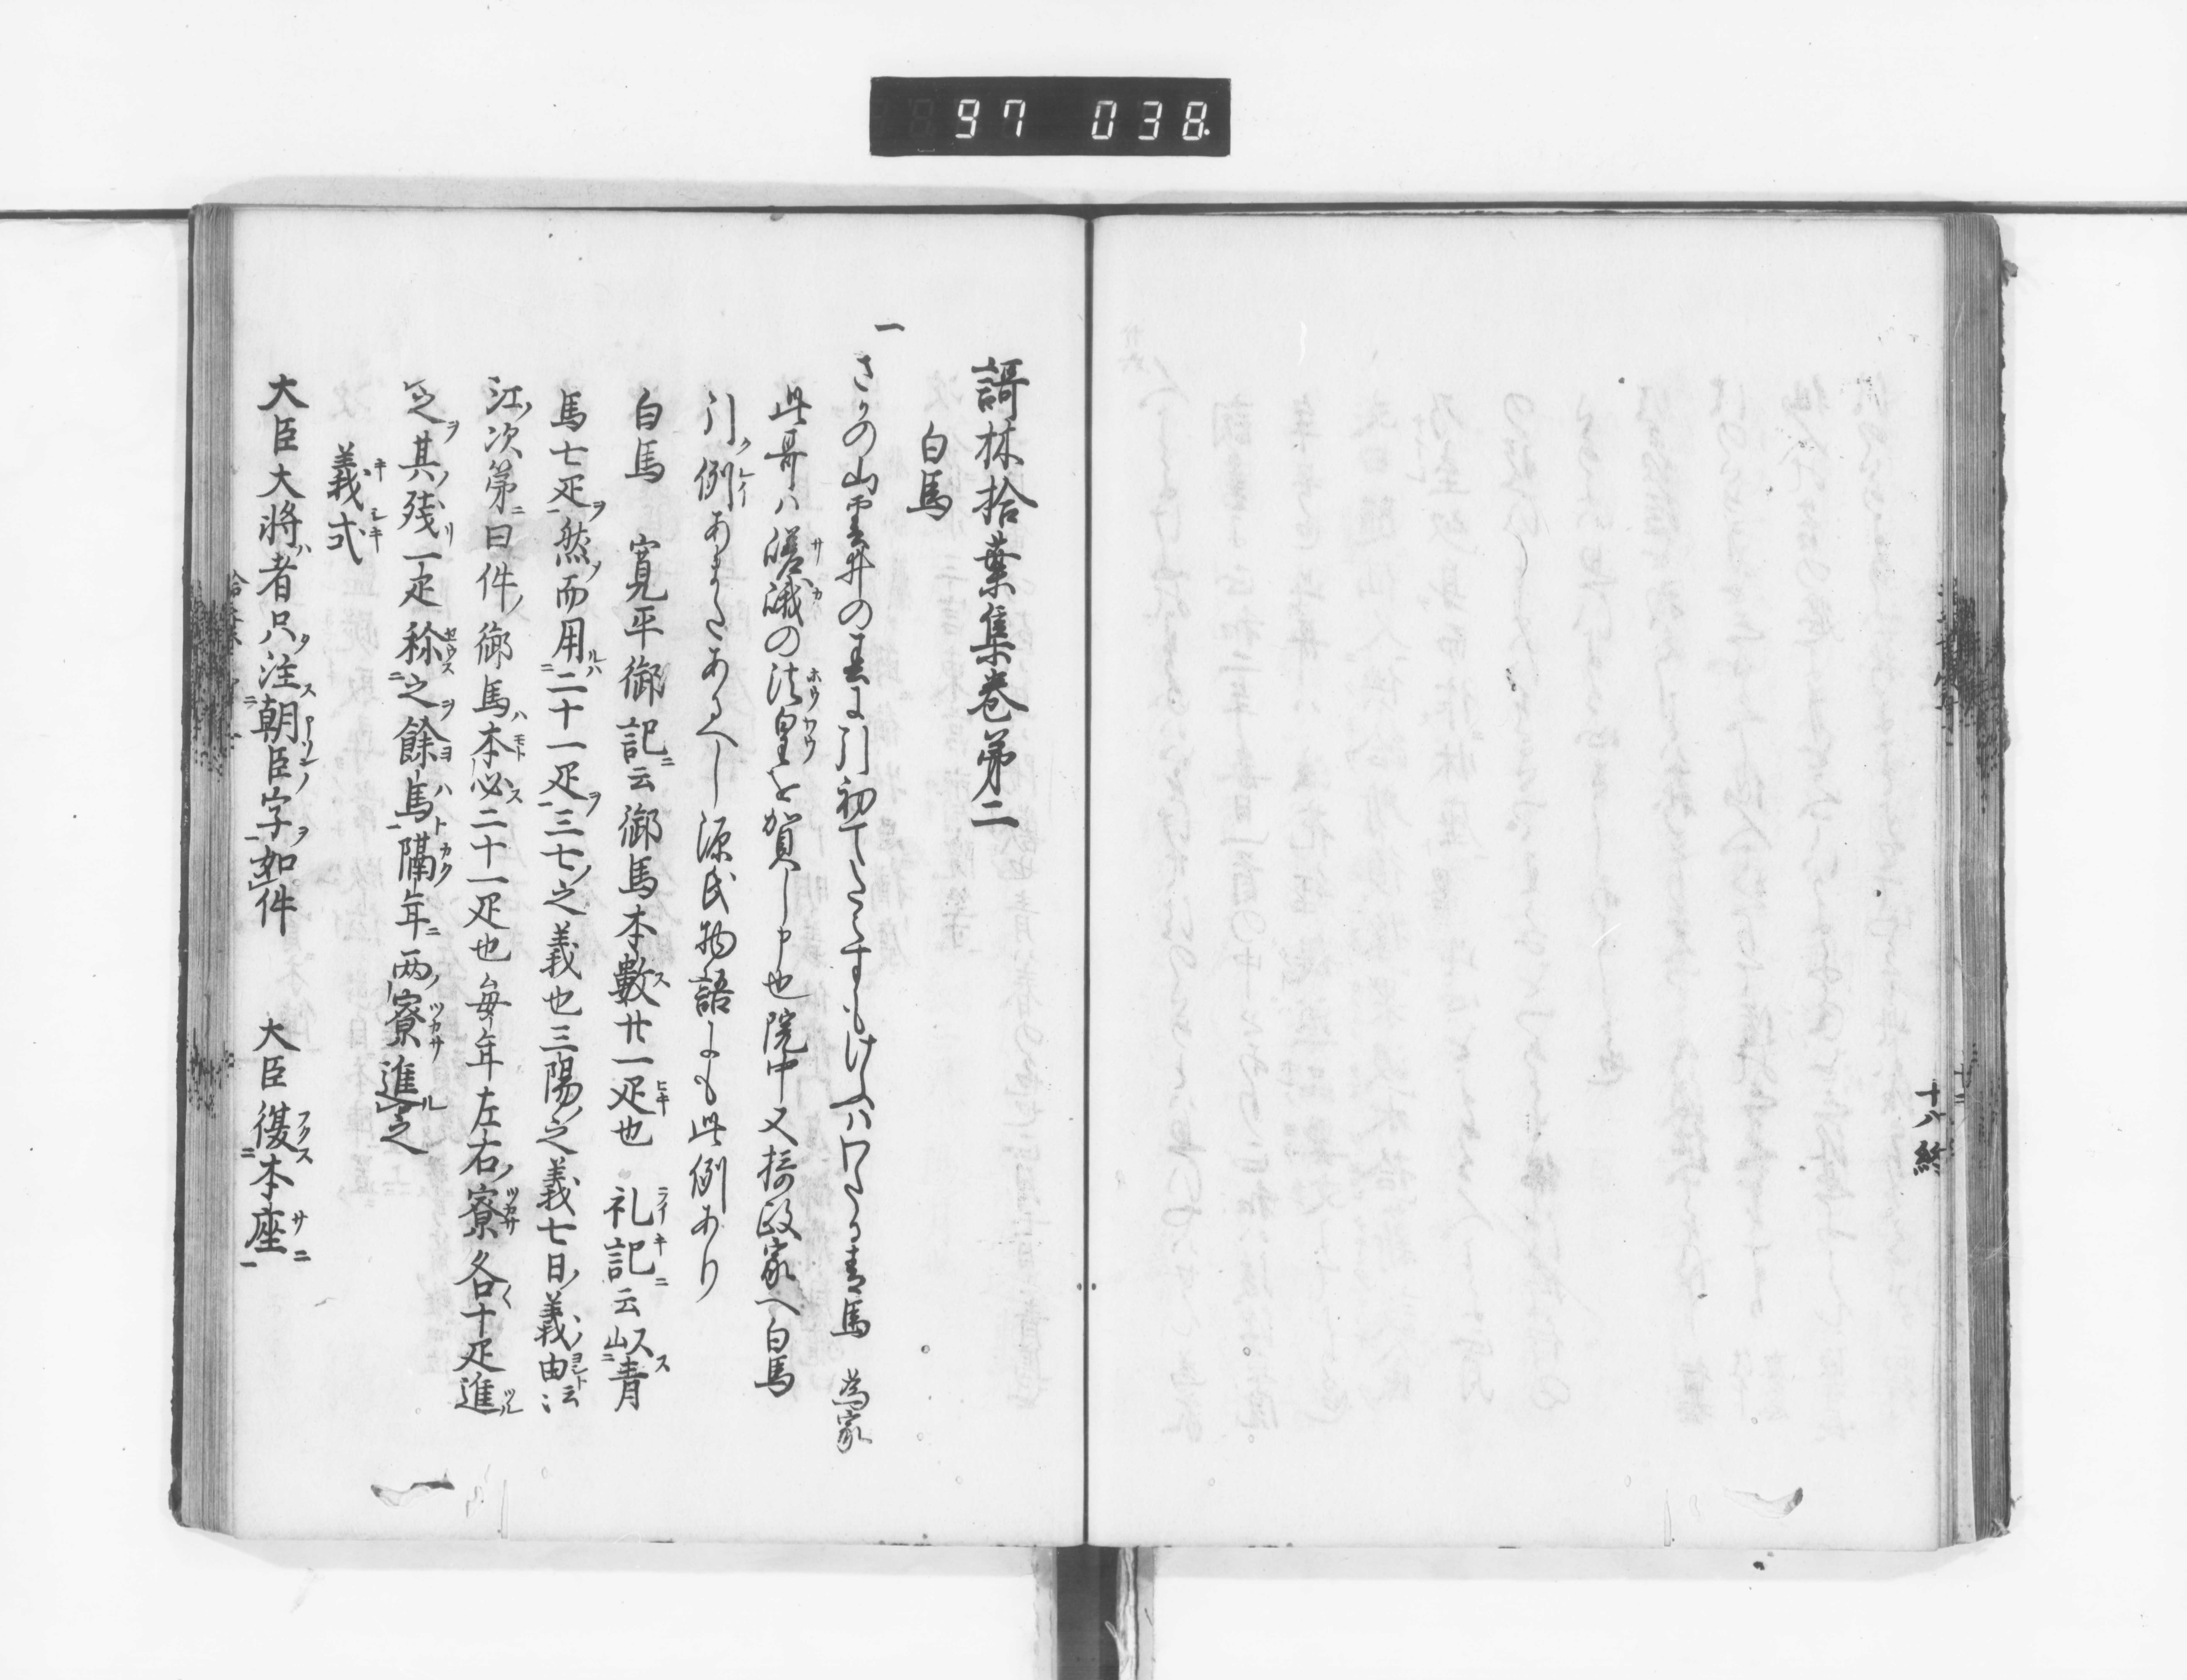 97 038.
十八終
謌林拾葉集巻第二
白馬
一 さかの山雲井の春に引初てたえすもけふハわたる青馬 為家
此哥ハ嵯峨の法皇を賀し申也院中又摂政家へ白馬
引例あまたあるへし源氏物語にも此例あり
白馬 寛平御記云御馬本數廿一疋也 礼記云以青
馬七疋然而用二十一疋三七之義也三陽之義七日義由云〻
江次第曰件御馬本必二十一疋也毎年左右寮各十疋進
之其残一疋称之餘馬隔年両寮進之
義式
大臣大将者只注朝臣字如件 大臣復本座
拾葉 二